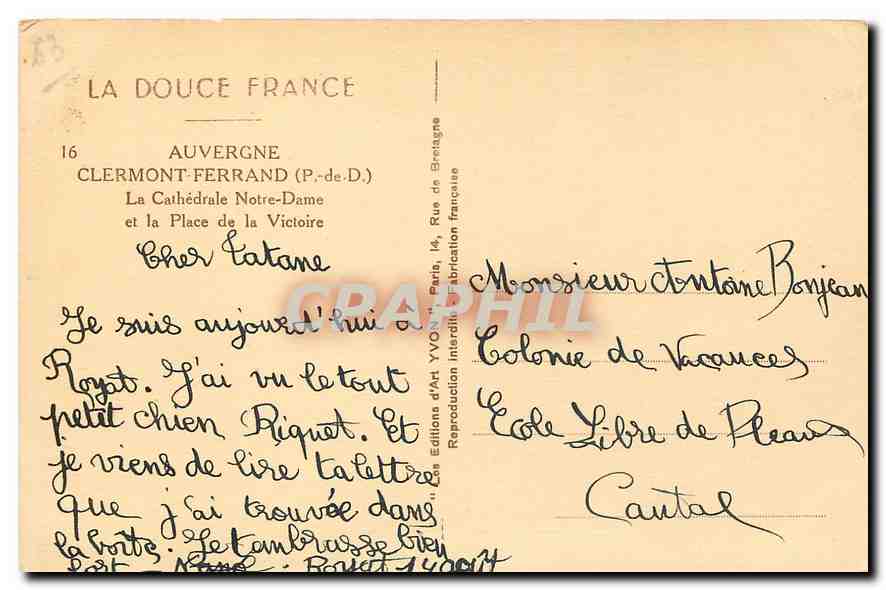 LA DOUCE FRANCE
16 AUVERGNE
CLERMONT-FERRAND (P.-de-D.)
La Cathédrale Notre-Dame
et la Place de la Victoire
Cher Tatane
Je suis aujourd'hui à
Royat. J'ai vu le tout
petit chien Riquet. Et
je viens de lire ta lettre
que j'ai trouvée dans
la boîte. Je t'embrasse bien
fort - Royat 14
"Les Editions d'Art YVON", Paris, 14, Rue de Bretagne
Reproduction interdite. Fabrication française
Monsieur Antoine Bonjean
Colonie de Vacances
Ecole Libre de Pleaux
Cantal
CRAPHIL